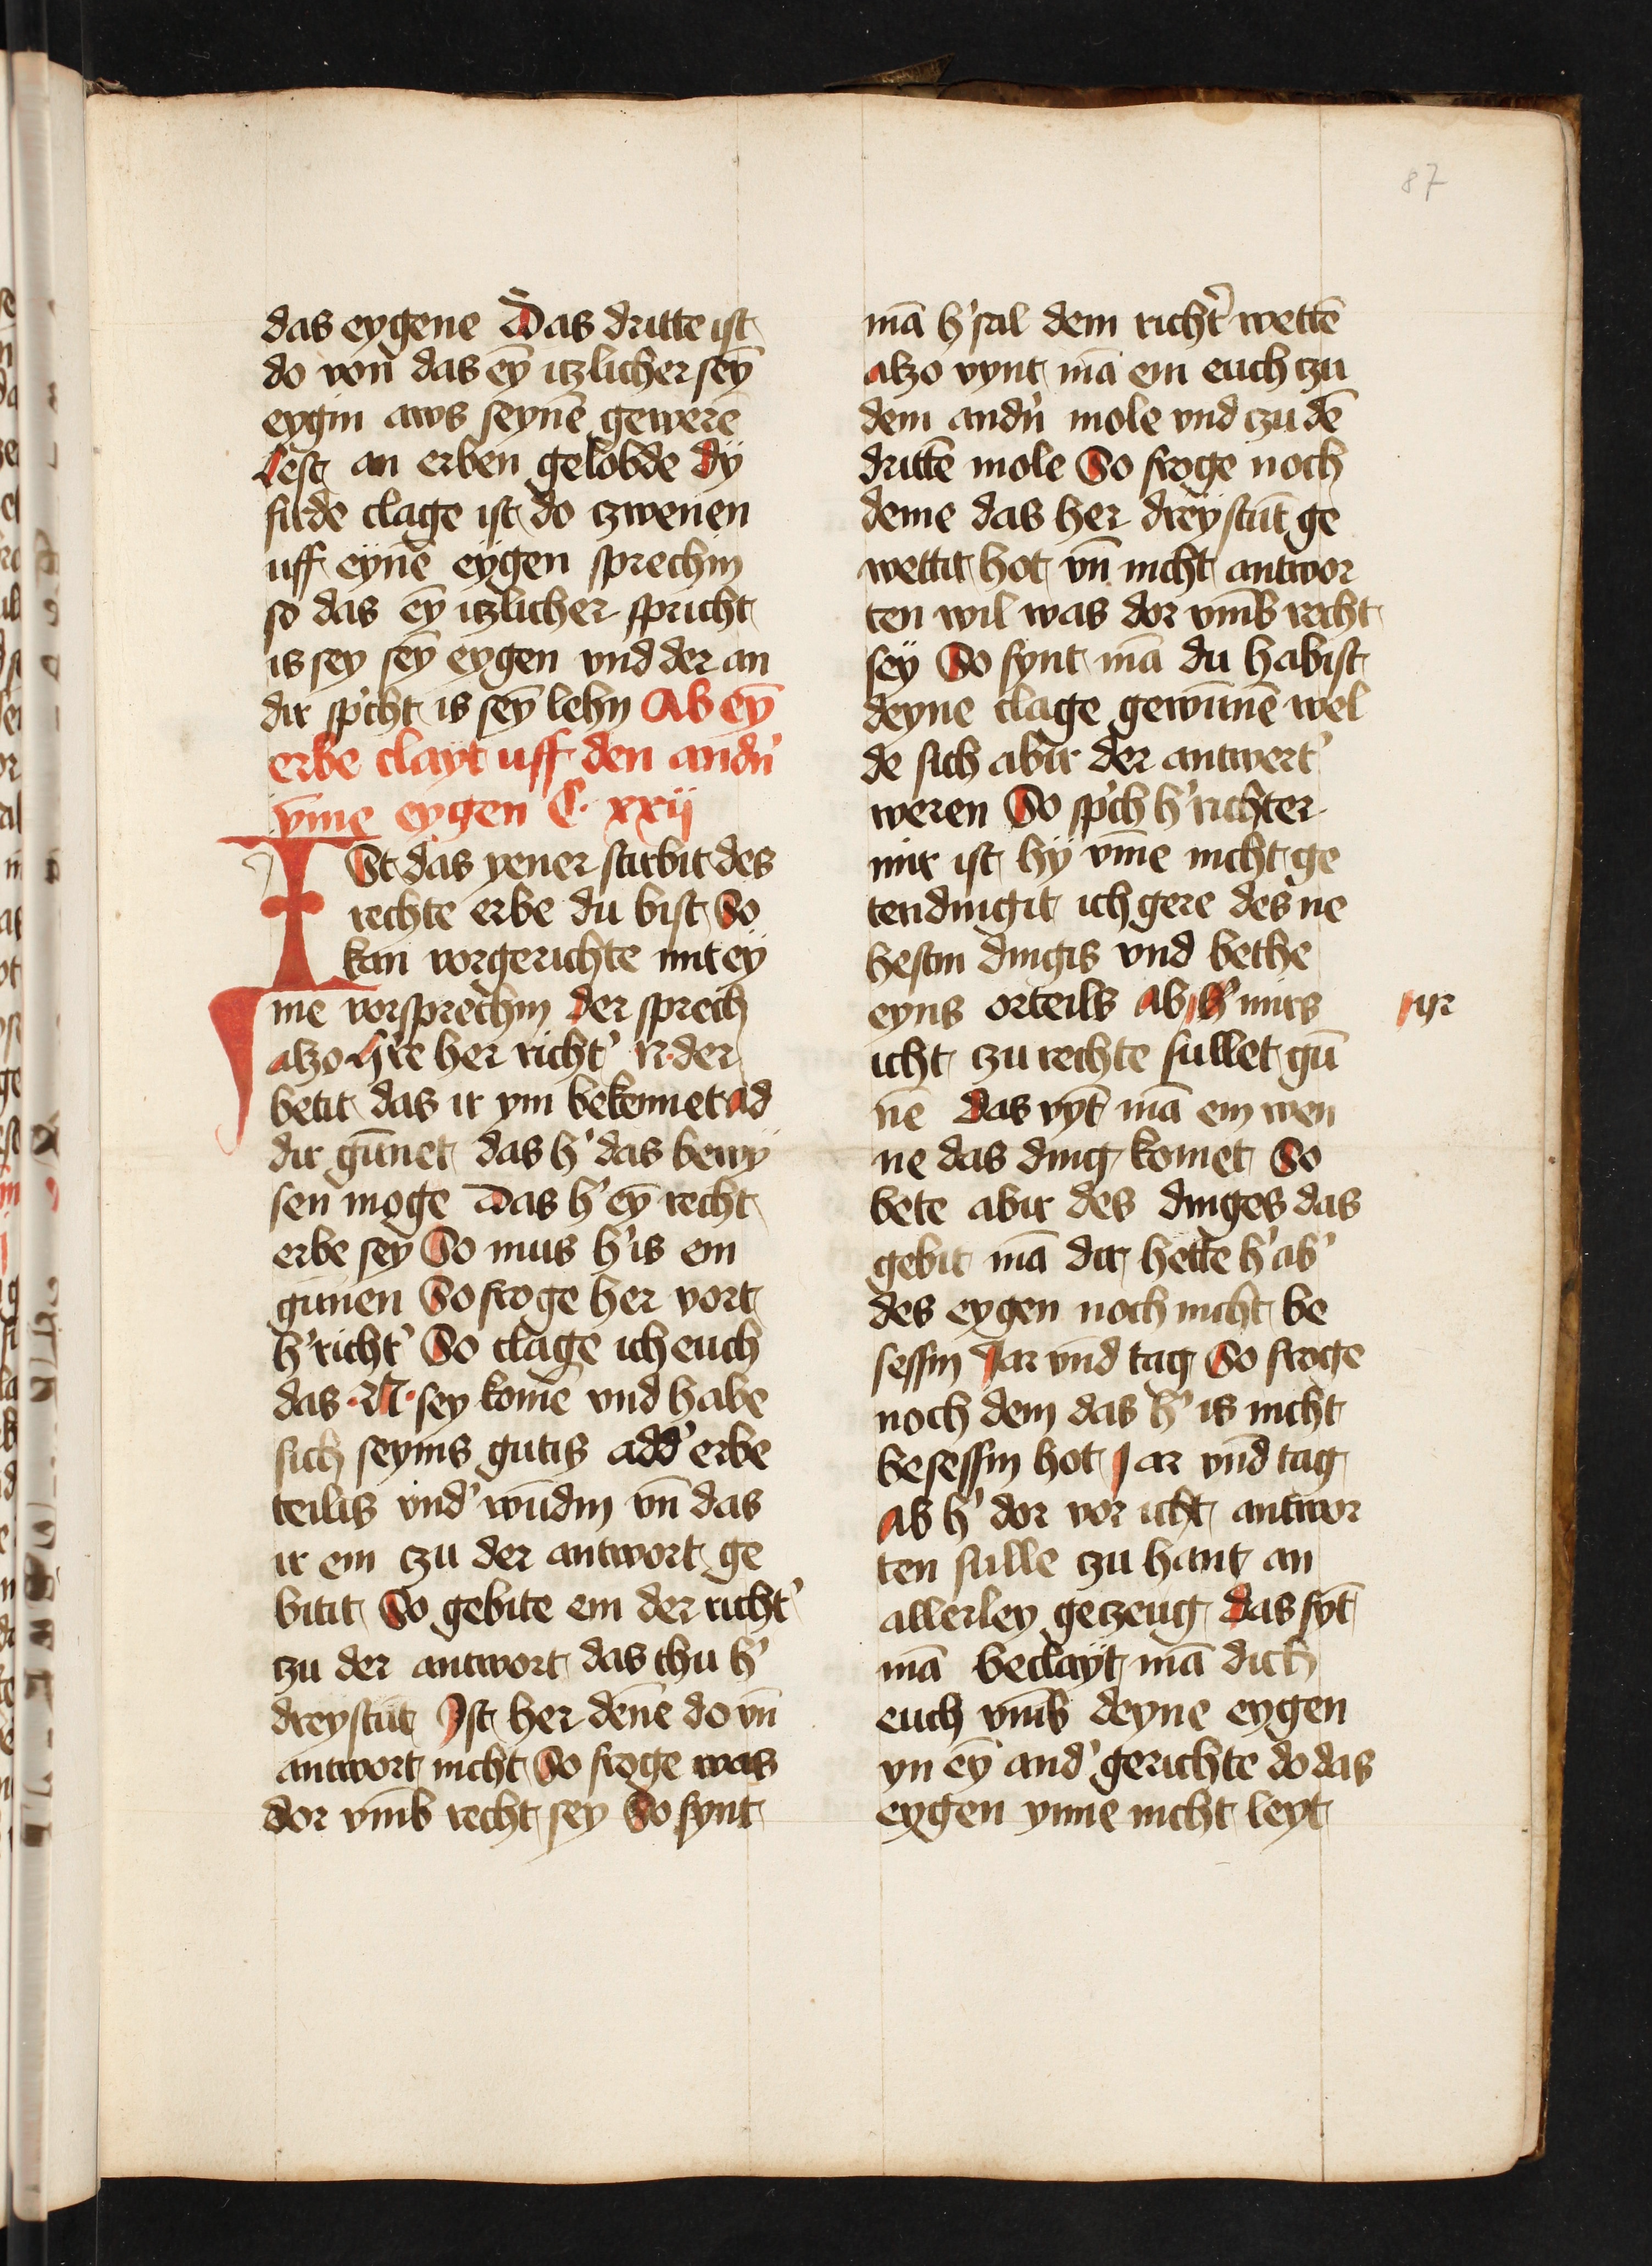 87
das eygene Das dritte ist
do von das eȳ itzlicher seȳ
eygin aws seynē gewere
lest an erben gelobde dÿ
firde clage ist do czwenen
uff eynē eygen sprechin
so das eȳ itzlicher spricht
is sey seȳ eygen vnd der an
dir sp'cht is seȳ lehn Ab eȳ
erbe clayt uff den andn̄
vm̄e eygen C. xxij
ISt das yener stirbit des
rechte erbe du bist So
kan vorgerichte mit ey
me vorsprechin der sprech
alzo h're her richt' N. der
betit das ir ym bekennet ad
dir gūnet das h' das bewÿ
sen moge Das h' eȳ recht
erbe sey So mus h' is em
gūnen So froge her vort
h' richt' So clage ich euch
das .N. sey komē vnd habe
sich seynis gutis add' erbe
teilis vnd' wūdin vn̄ das
ir em czu der antwort ge
bitit So gebite em der richt'
czu der antwort das thu h'
dreystūt Ist her den̄e do vn̄
antwort nicht So froge was
dor vmb recht sey So fynt
mā h' sal dem richt' wettē
alzo vynt mā em euch czu
dem andn̄ mole vnd czu dē
drittē mole So froge noch
deme das her dreystūt ge
wettit hot vn̄ nicht antwor
ten wil was dor vmb recht
sey So fynt mā du habist
deyne clage gewūnē wel
de sich abir der antwert'
weren So sp'ch h' richter
mir ist hÿ vm̄e nicht ge
tendingit ich gere des ne
hestin dingis vnd bethe
eyns orteils Ab h' mirs
ir
icht czu rechte sullet gū
nē Das vȳt mā em wen
ne das ding komet So
bete abir des dinges das
gebit mā dir hette h' ab'
des eygen noch nicht be
sessin Jar vnd tag So froge
noch dem das h' is nicht
besessin hot Jar vnd tag
Ab h' dor vor icht antwor
ten sulle czu hant an
allerley geczeug das fȳt
mā beclayt mā dich
euch vmb deyne eygen
yn eȳ and' gerichte do das
eygen ynne nicht leyt